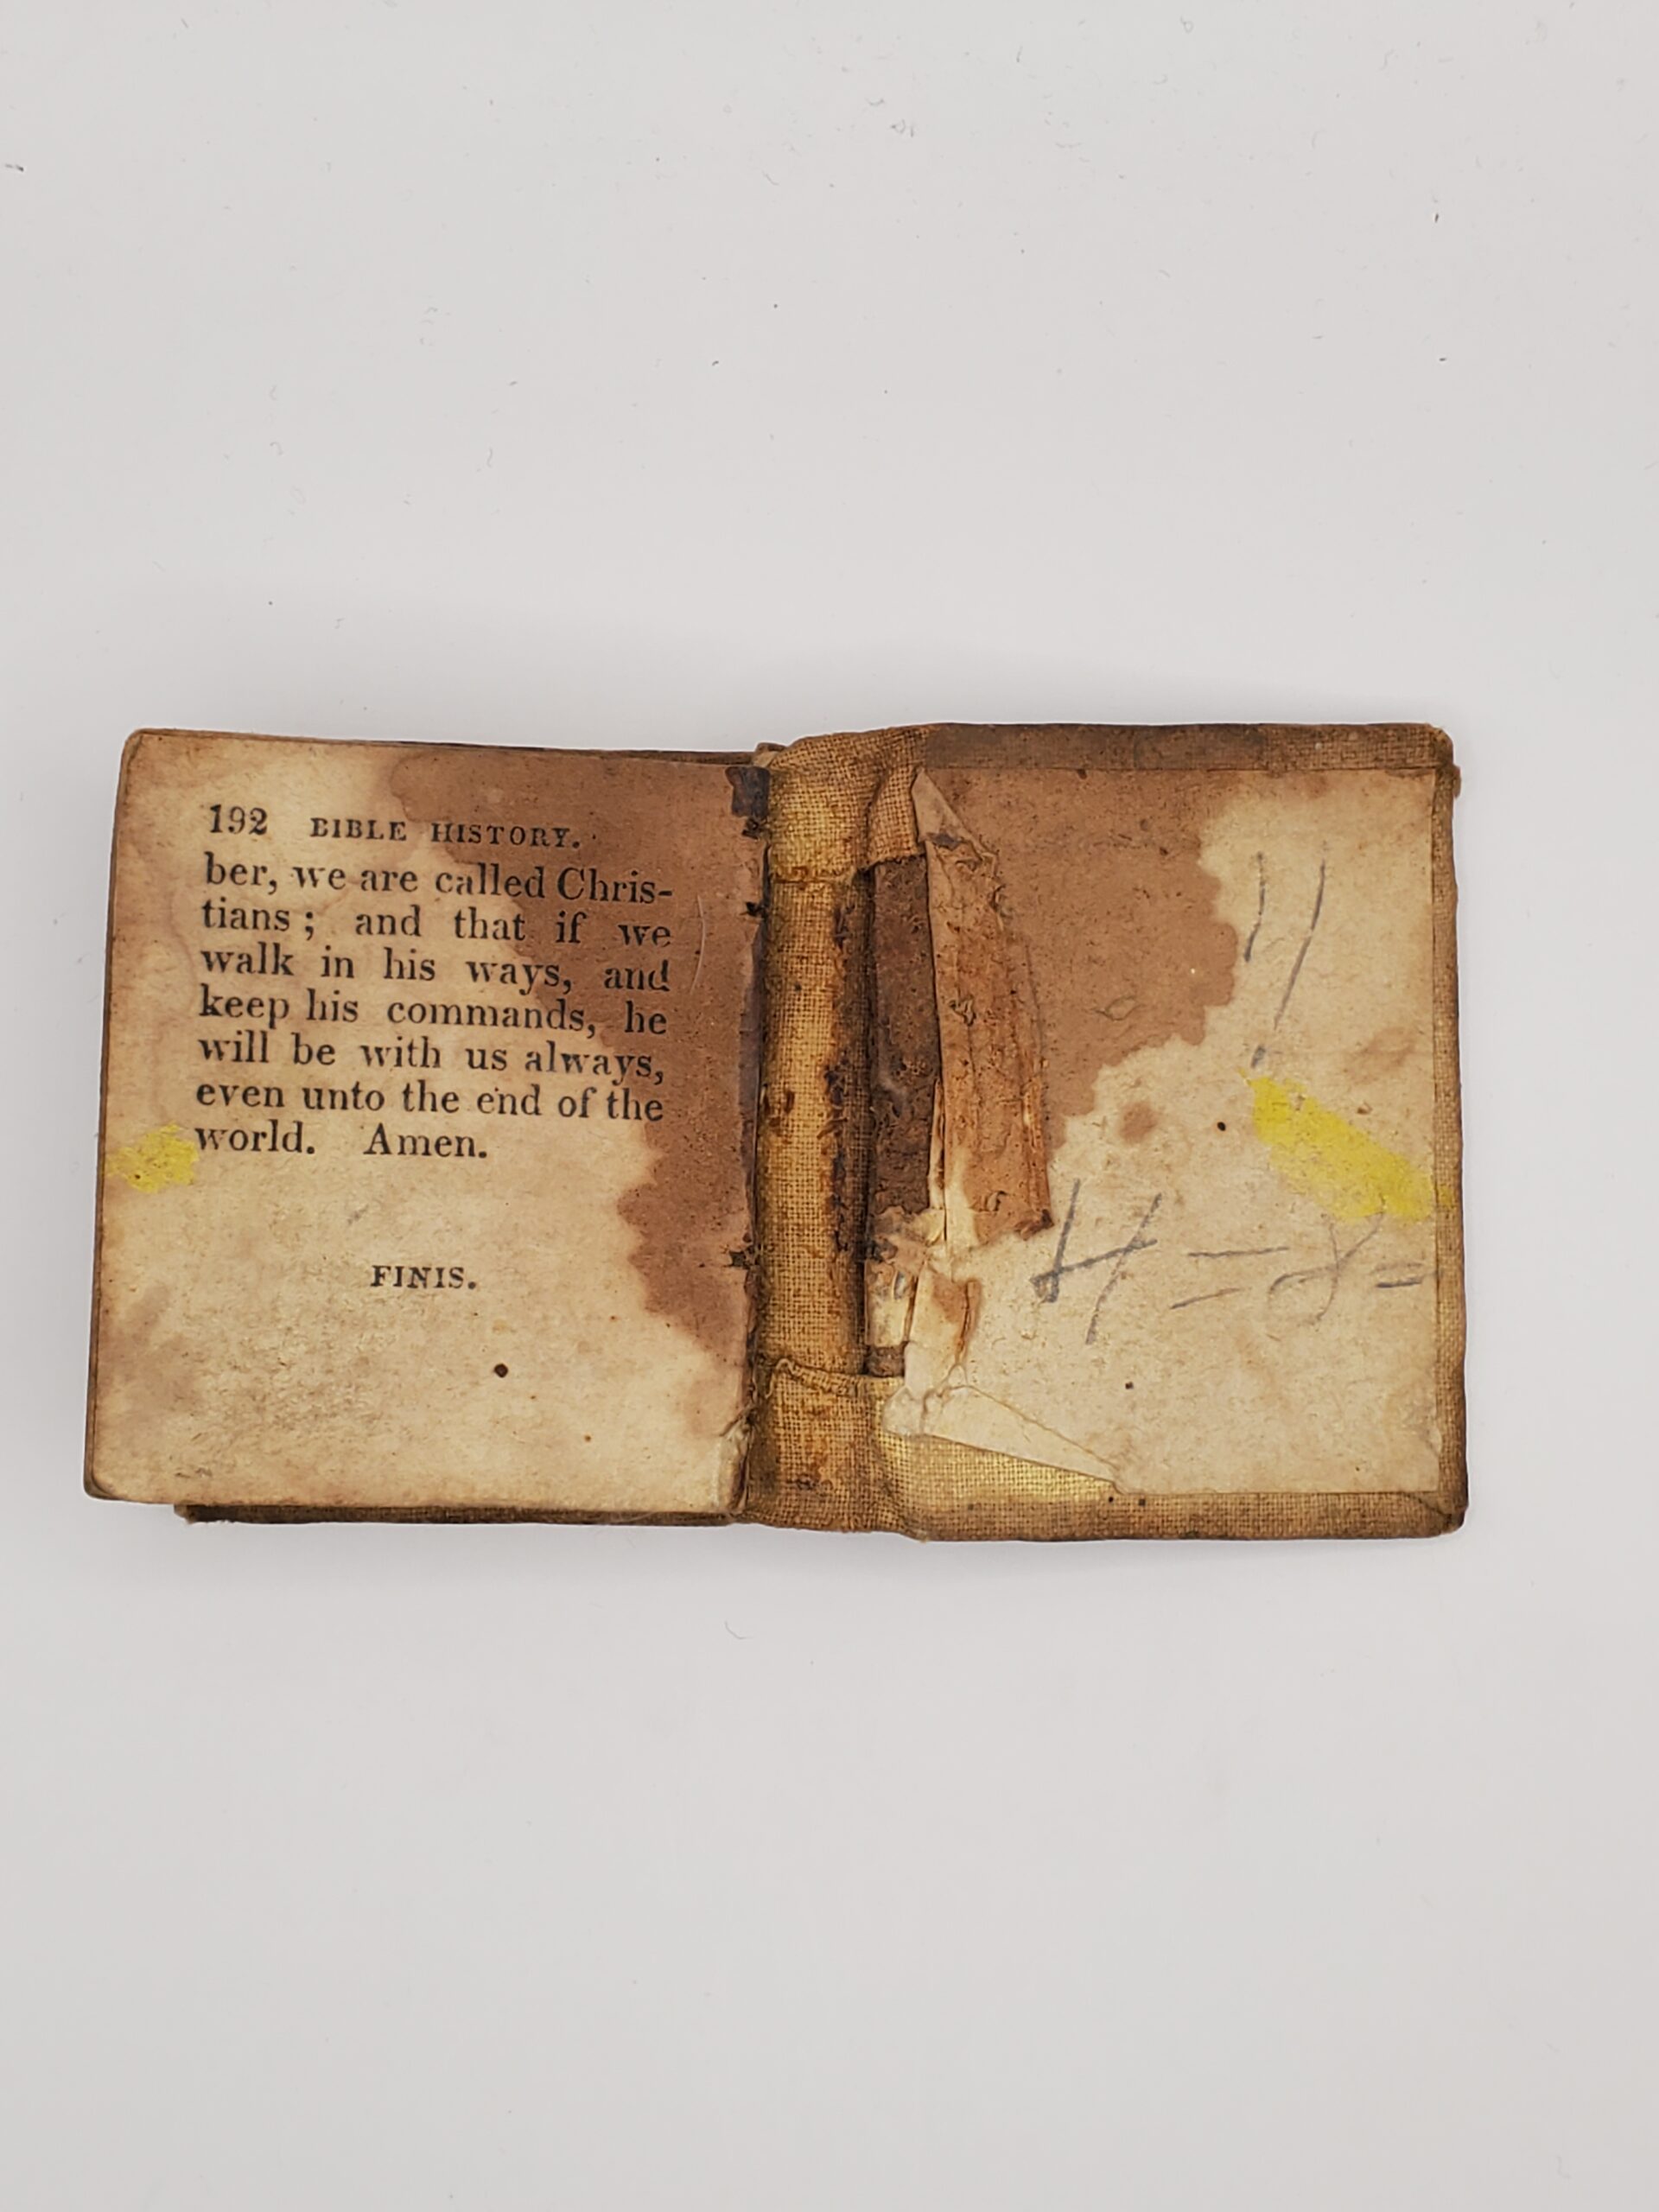 192 BIBLE HISTORY.
ber, we are called Chris-
tians ; and that if we
walk in his ways, and
keep his commands, he
will be with us always,
even unto the end of the
world. Amen.
FINIS.